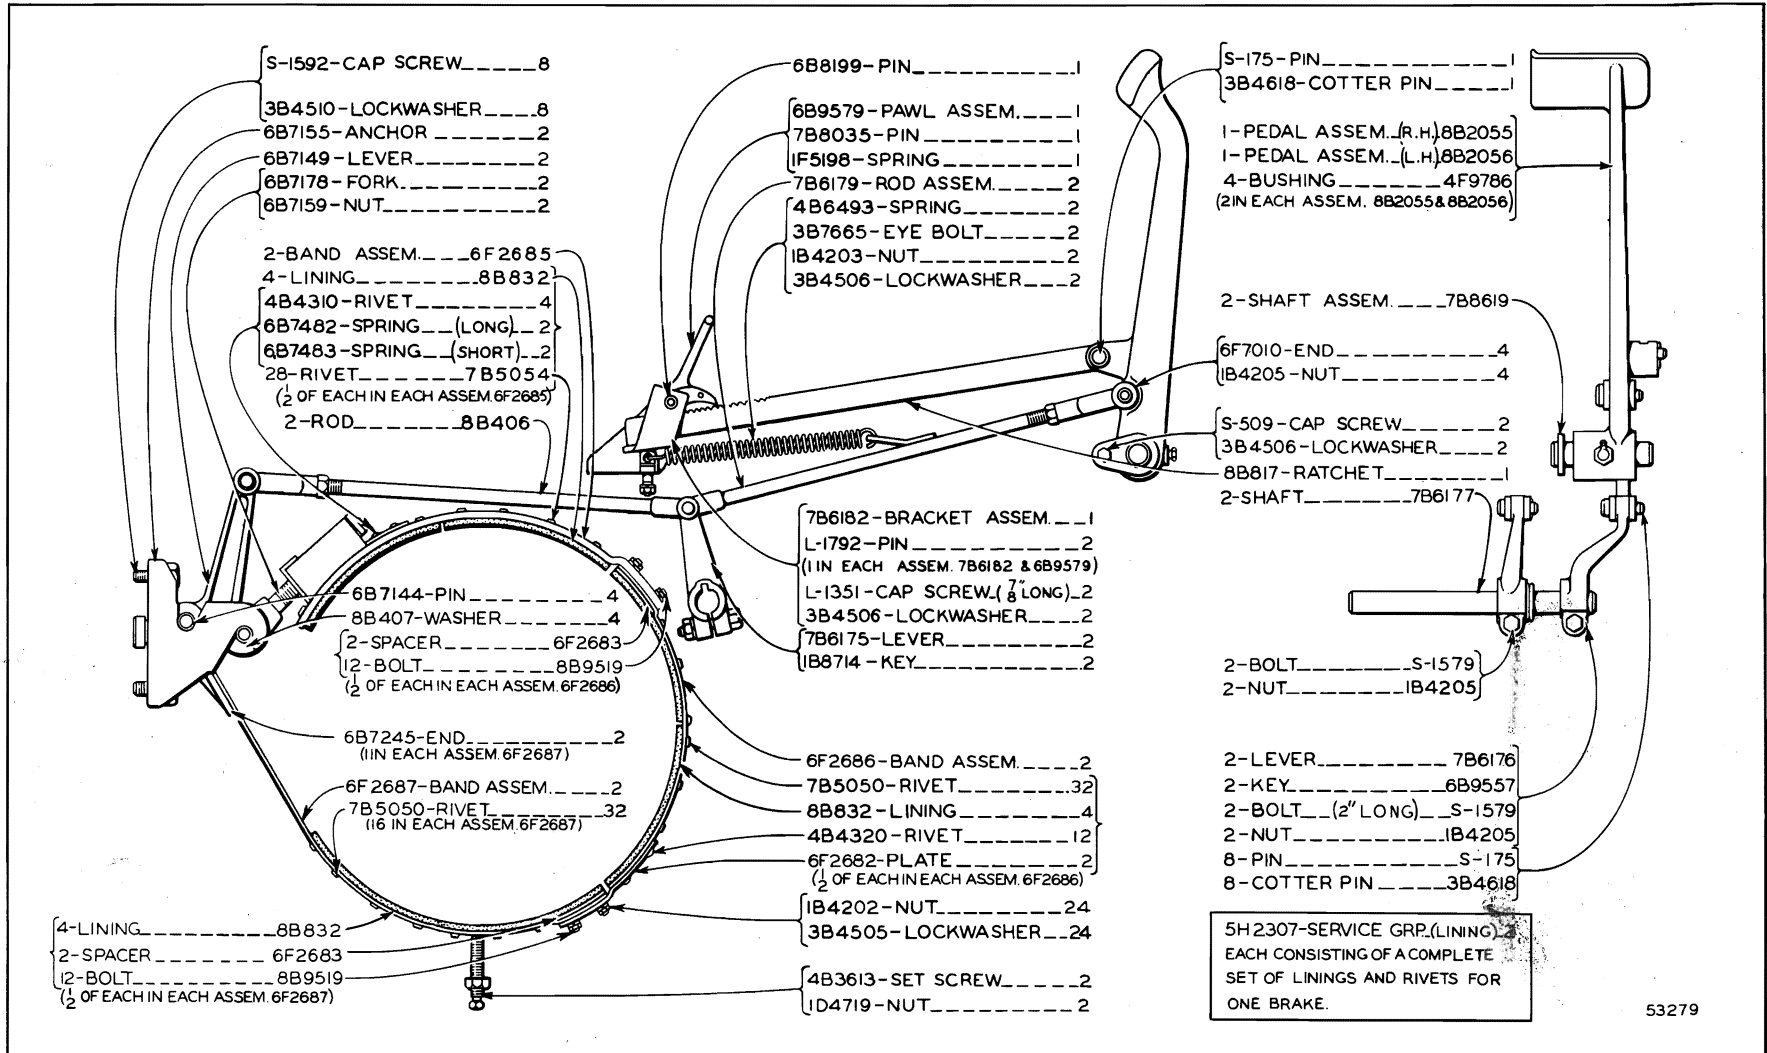 S-1592-CAP SCREW_____8
3B4510-LOCKWASHER____8
6B7155-ANCHOR ______2
6B7149-LEVER_______2
6B7178-FORK________2
6B7159-NUT_________2
2-BAND ASSEM.___6F2685
4-LINING________8B832
4B4310-RIVET_______4
6B7482-SPRING__(LONG)__2
6B7483-SPRING__(SHORT)__2
28-RIVET______7B5054
(1/2 OF EACH IN EACH ASSEM. 6F2685)
2-ROD_______8B406
6B7144-PIN________4
8B407-WASHER_____4
2-SPACER______6F2683
12-BOLT_______8B9519
(1/2 OF EACH IN EACH ASSEM. 6F2686)
6B7245-END_________2
(1 IN EACH ASSEM. 6F2687)
6F2687-BAND ASSEM.___2
7B5050-RIVET_______32
(16 IN EACH ASSEM. 6F2687)
4-LINING________8B832
2-SPACER_______6F2683
12-BOLT_______8B9519
(1/2 OF EACH IN EACH ASSEM. 6F2687)
6B8199-PIN__________1
6B9579-PAWL ASSEM.___1
7B8035-PIN_________1
1F5198-SPRING_______1
7B6179-ROD ASSEM.___2
4B6493-SPRING______2
3B7665-EYE BOLT_____2
1B4203-NUT_________2
3B4506-LOCKWASHER___2
7B6182-BRACKET ASSEM.__1
L-1792-PIN__________2
(1 IN EACH ASSEM. 7B6182 & 6B9579)
L-1351-CAP SCREW_(7/8" LONG)_2
3B4506-LOCKWASHER____2
7B6175-LEVER_______2
1B8714-KEY_________2
6F2686-BAND ASSEM.___2
7B5050-RIVET_______32
8B832-LINING________4
4B4320-RIVET_______12
6F2682-PLATE_______2
(1/2 OF EACH IN EACH ASSEM. 6F2686)
1B4202-NUT________24
3B4505-LOCKWASHER__24
4B3613-SET SCREW____2
1D4719-NUT_________2
S-175-PIN___________1
3B4618-COTTER PIN_____1
1-PEDAL ASSEM._(R.H.)_8B2055
1-PEDAL ASSEM._(L.H.)_8B2056
4-BUSHING_______4F9786
(2 IN EACH ASSEM. 8B2055 & 8B2056)
2-SHAFT ASSEM.___7B8619
6F7010-END_________4
1B4205-NUT_________4
S-509-CAP SCREW_____2
3B4506-LOCKWASHER___2
8B817-RATCHET_______1
2-SHAFT_______7B6177
2-BOLT_______S-1579
2-NUT_______1B4205
2-LEVER________7B6176
2-KEY_________6B9557
2-BOLT__(2" LONG)__S-1579
2-NUT_________1B4205
8-PIN__________S-175
8-COTTER PIN____3B4618
5H2307-SERVICE GRP._(LINING)_2
EACH CONSISTING OF A COMPLETE
SET OF LININGS AND RIVETS FOR
ONE BRAKE.
53279